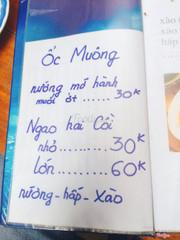 Ốc Muông
nướng mỡ hành
muối ớt ....... 30K
Ngao hai Cồi
nhỏ ......... 30K
Lớn ......... 60K
nướng - hấp - Xào
xào
hấp